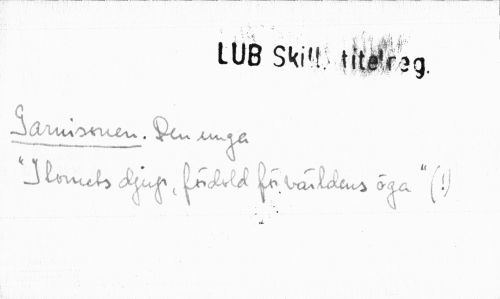 LUB Skill. titelreg.
Garnisonen. Den unga
"I lornets djup, fördold för världens öga" (!)